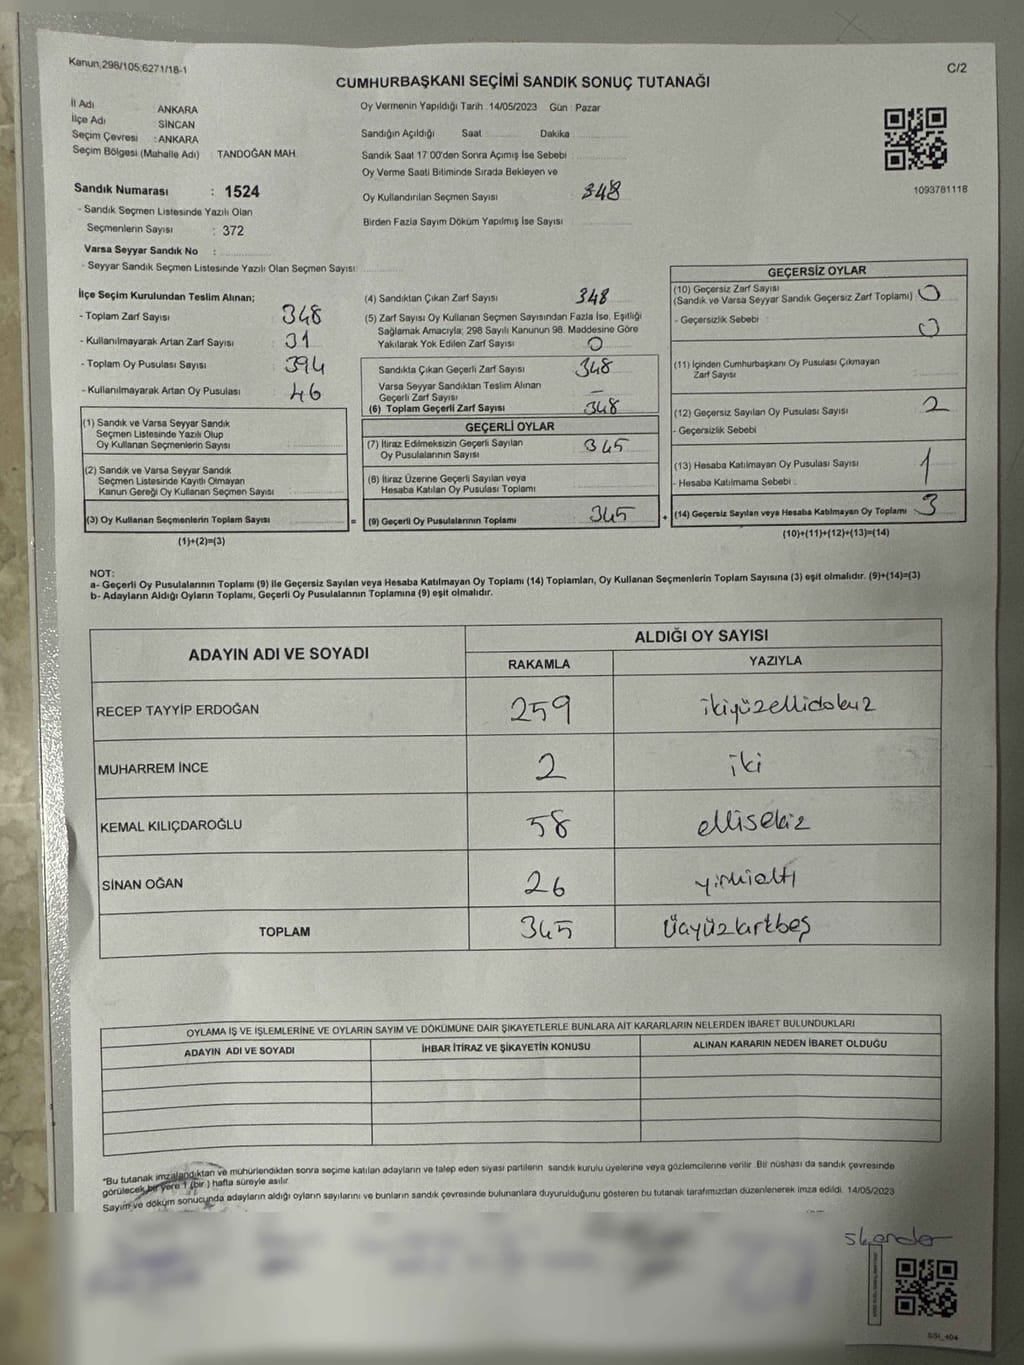 Kanun,298/105,6271/18-1
C/2
CUMHURBAŞKANI SEÇİMİ SANDIK SONUÇ TUTANAĞI
İl Adı ANKARA
İlçe Adı : SİNCAN
Seçim Çevresi : ANKARA
Seçim Bölgesi (Mahalle Adı) : TANDOĞAN MAH.
Sandık Numarası : 1524
- Sandık Seçmen Listesinde Yazılı Olan
Seçmenlerin Sayısı : 372
Varsa Seyyar Sandık No :
- Seyyar Sandık Seçmen Listesinde Yazılı Olan Seçmen Sayısı:
Oy Vermenin Yapıldığı Tarih :14/05/2023 Gün : Pazar
Sandığın Açıldığı Saat Dakika
Sandık Saat 17:00'den Sonra Açımış İse Sebebi :
Oy Verme Saati Bitiminde Sırada Bekleyen ve
Oy Kullandırılan Seçmen Sayısı 348
Birden Fazla Sayım Döküm Yapılmış İse Sayısı
1093781118
İlçe Seçim Kurulundan Teslim Alınan;
- Toplam Zarf Sayısı : 348
- Kullanılmayarak Artan Zarf Sayısı : 31
- Toplam Oy Pusulası Sayısı : 394
- Kullanılmayarak Artan Oy Pusulası : 46
(1) Sandık ve Varsa Seyyar Sandık
Seçmen Listesinde Yazılı Olup
Oy Kullanan Seçmenlerin Sayısı
(2) Sandık ve Varsa Seyyar Sandık
Seçmen Listesinde Kayıtlı Olmayan
Kanun Gereği Oy Kullanan Seçmen Sayısı
(3) Oy Kullanan Seçmenlerin Toplam Sayısı =
(1)+(2)=(3)
(4) Sandıktan Çıkan Zarf Sayısı 348
(5) Zarf Sayısı Oy Kullanan Seçmen Sayısından Fazla İse, Eşitliği
Sağlamak Amacıyla; 298 Sayılı Kanunun 98. Maddesine Göre
Yakılarak Yok Edilen Zarf Sayısı 0
Sandıkta Çıkan Geçerli Zarf Sayısı 348
Varsa Seyyar Sandıktan Teslim Alınan
Geçerli Zarf Sayısı –
(6) Toplam Geçerli Zarf Sayısı 348
GEÇERLİ OYLAR
(7) İtiraz Edilmeksizin Geçerli Sayılan
Oy Pusulalarının Sayısı 345
(8) İtiraz Üzerine Geçerli Sayılan veya
Hesaba Katılan Oy Pusulası Toplamı
(9) Geçerli Oy Pusulalarının Toplamı 345 +
GEÇERSİZ OYLAR
(10) Geçersiz Zarf Sayısı
(Sandık ve Varsa Seyyar Sandık Geçersiz Zarf Toplamı) 0
- Geçersizlik Sebebi : 0
(11) İçinden Cumhurbaşkanı Oy Pusulası Çıkmayan
Zarf Sayısı
(12) Geçersiz Sayılan Oy Pusulası Sayısı 2
- Geçersizlik Sebebi
(13) Hesaba Katılmayan Oy Pusulası Sayısı 1
- Hesaba Katılmama Sebebi
(14) Geçersiz Sayılan veya Hesaba Katılmayan Oy Toplamı 3
(10)+(11)+(12)+(13)=(14)
NOT:
a- Geçerli Oy Pusulalarının Toplamı (9) ile Geçersiz Sayılan veya Hesaba Katılmayan Oy Toplamı (14) Toplamları, Oy Kullanan Seçmenlerin Toplam Sayısına (3) eşit olmalıdır. (9)+(14)=(3)
b- Adayların Aldığı Oyların Toplamı, Geçerli Oy Pusulalarının Toplamına (9) eşit olmalıdır.
ADAYIN ADI VE SOYADI ALDIĞI OY SAYISI
RAKAMLA YAZIYLA
RECEP TAYYİP ERDOĞAN 259 ikiyüzellidokuz
MUHARREM İNCE 2 iki
KEMAL KILIÇDAROĞLU 58 ellisekiz
SİNAN OĞAN 26 yirmialtı
TOPLAM 345 üçyüzkırkbeş
OYLAMA İŞ VE İŞLEMLERİNE VE OYLARIN SAYIM VE DÖKÜMÜNE DAİR ŞİKAYETLERLE BUNLARA AİT KARARLARIN NELERDEN İBARET BULUNDUKLARI
ADAYIN ADI VE SOYADI İHBAR İTİRAZ VE ŞİKAYETİN KONUSU ALINAN KARARIN NEDEN İBARET OLDUĞU
*Bu tutanak imzalandıktan ve mühürlendikten sonra seçime katılan adayların ve talep eden siyasi partilerin sandık kurulu üyelerine veya gözlemcilerine verilir. Bir nüshası da sandık çevresinde
görülecek bir yere 1 (bir) hafta süreyle asılır.
Sayım ve döküm sonucunda adayların aldığı oyların sayılarını ve bunların sandık çevresinde bulunanlara duyurulduğunu gösteren bu tutanak tarafımızdan düzenlenerek imza edildi. 14/05/2023
SSI_404